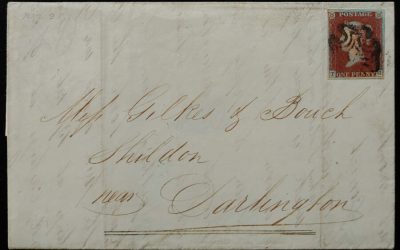 POSTAGE
ONE PENNY
Mess Gilkes & Bouch
Shildon
near Darlington